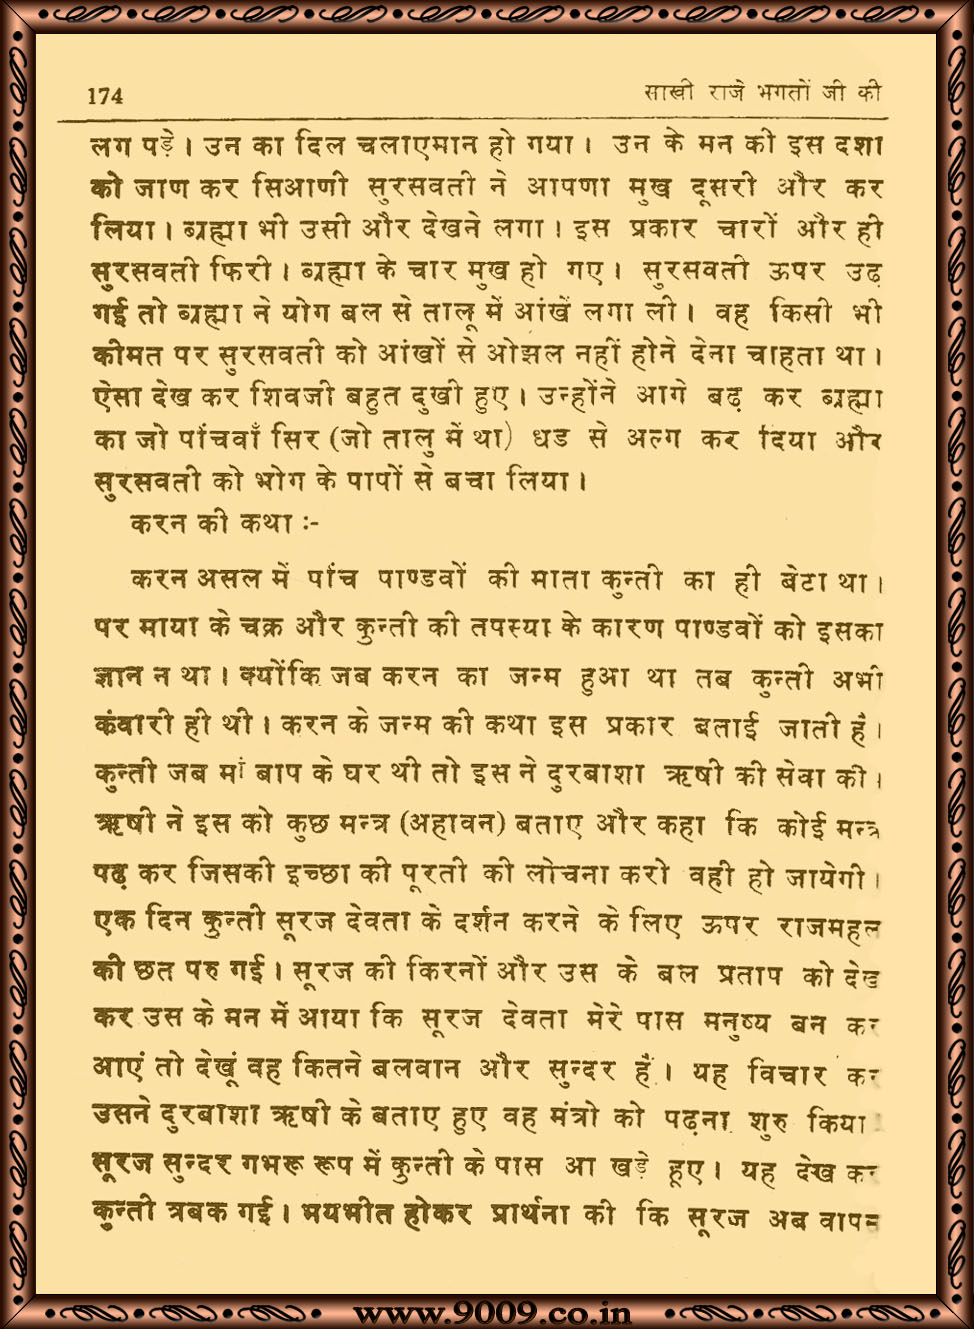 174 साखी राजे भगतों जी की
लग पड़े। उन का दिल चलाएमान हो गया। उन के मन की इस दशा
को जाण कर सिआणी सुरसवती ने आपणा मुख दूसरी और कर
लिया। ब्रह्मा भी उसी और देखने लगा। इस प्रकार चारों और ही
सुरसवती फिरी। ब्रह्मा के चार मुख हो गए। सुरसवती ऊपर उढ
गई तो ब्रह्मा ने योग बल से तालू में आंखें लगा ली। वह किसी भी
कीमत पर सुरसवती को आंखों से ओझल नहीं होने देना चाहता था।
ऐसा देख कर शिवजी बहुत दुखी हुए। उन्होंने आगे बढ़ कर ब्रह्मा
का जो पांचवाँ सिर (जो तालु में था) धड से अल्ग कर दिया और
सुरसवती को भोग के पापों से बचा लिया।
करन की कथा :-
करन असल में पांच पाण्डवों की माता कुन्ती का ही बेटा था।
पर माया के चक्र और कुन्ती की तपस्या के कारण पाण्डवों को इसका
ज्ञान न था। क्योंकि जब करन का जन्म हुआ था तब कुन्ती अभी
कंवारी ही थी। करन के जन्म की कथा इस प्रकार बताई जाती है।
कुन्ती जब मां बाप के घर थी तो इस ने दुरबाशा ऋषी की सेवा की।
ऋषी ने इस को कुछ मन्त्र (अहावन) बताए और कहा कि कोई मन्त्र
पढ़ कर जिसकी इच्छा की पूरती की लोचना करो वही हो जायेगी।
एक दिन कुन्ती सूरज देवता के दर्शन करने के लिए ऊपर राजमहल
की छत परु गई। सूरज की किरनों और उस के बल प्रताप को देख
कर उस के मन में आया कि सूरज देवता मेरे पास मनुष्य बन कर
आएं तो देखूं वह कितने बलवान और सुन्दर हैं। यह विचार कर
उसने दुरबाशा ऋषी के बताए हुए वह मंत्रो को पढ़ना शुरु किया
सूरज सुन्दर गभरू रूप में कुन्ती के पास आ खड़े हूए। यह देख कर
कुन्ती त्रबक गई। भयभीत होकर प्रार्थना की कि सूरज अब वापस
www.9009.co.in